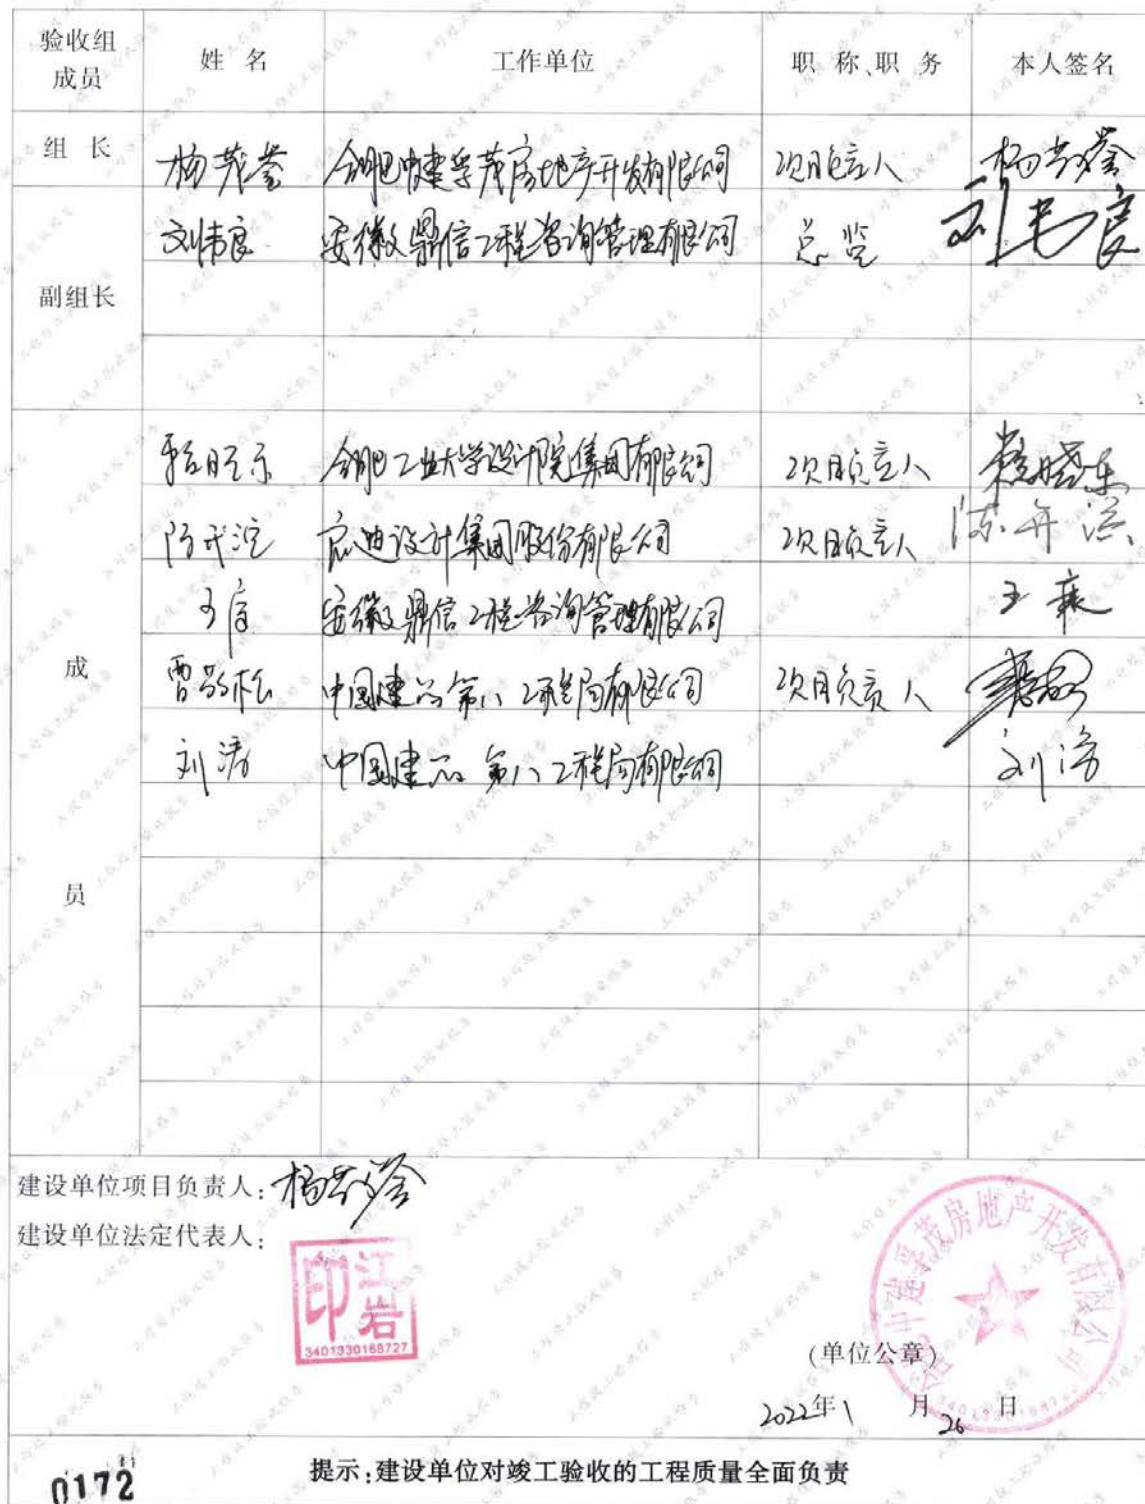 验收组成员 姓 名 工作单位 职 称、职 务 本人签名
组 长 合肥中建孚茂房地产开发有限公司 项目负责人
刘伟良 安徽鼎信工程咨询管理有限公司 总监
副组长
合肥工业大学设计院集团有限公司 项目负责人
启迪设计集团股份有限公司 项目负责人
安徽鼎信工程咨询管理有限公司
成
中国建筑第八工程局有限公司 项目负责人
刘涛 中国建筑第八工程局有限公司 刘涛
员
建设单位项目负责人:
建设单位法定代表人:
江岩印
3401330168727
合肥中建孚茂房地产开发有限公司
(单位公章)
2022年1月26日
0172
提示:建设单位对竣工验收的工程质量全面负责